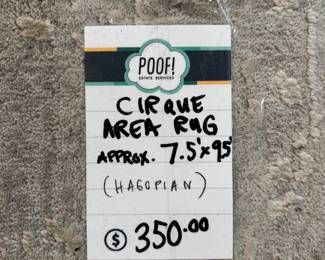 POOF!
ESTATE SERVICES
CIRQUE
AREA RUG
APPROX. 7.5'x9.5'
(HAGOPIAN)
$ 350.00